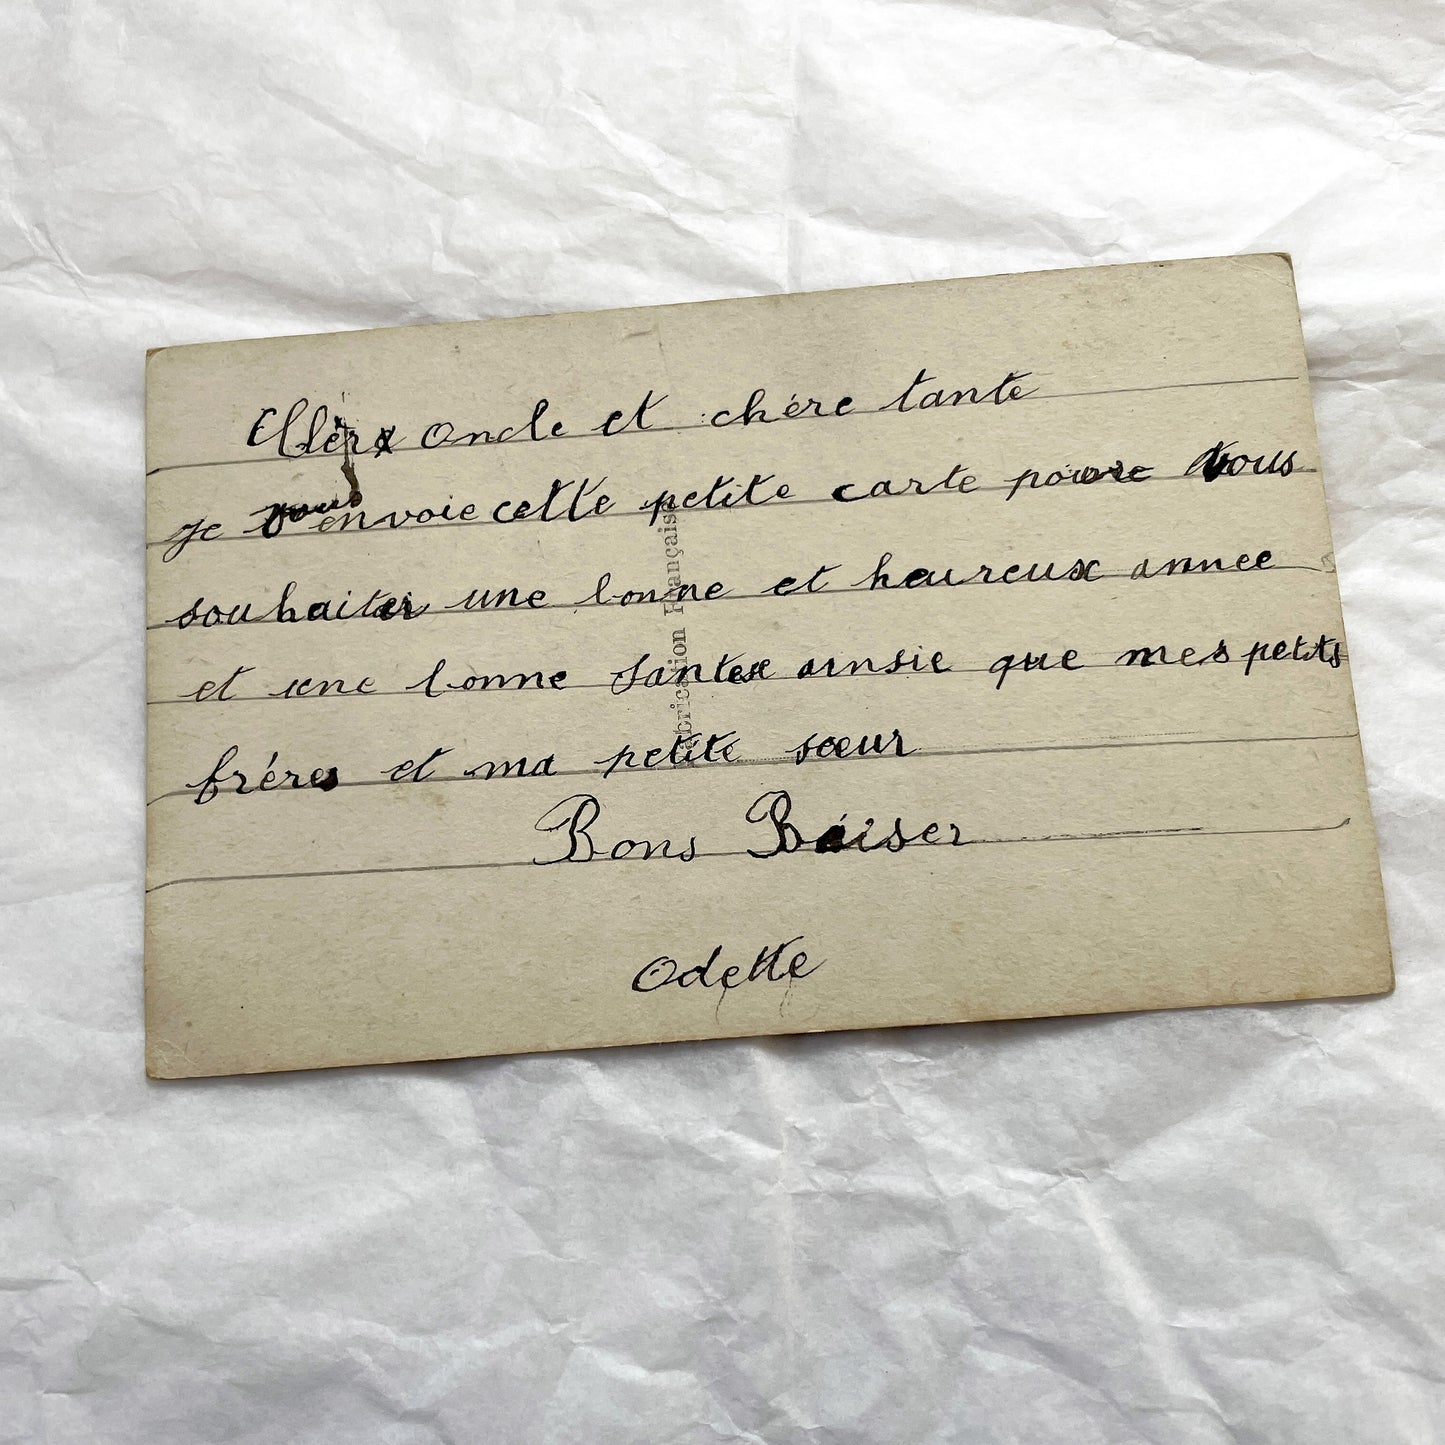 Chèrx Oncle et chère tante
je vous envoie cette petite carte pour vous
souhaiter une bonne et heureux annee
et une bonne Santer ainsie que mes petits
fréres et ma petite sœur
Bons Baiser
Odette
Fabrication Française